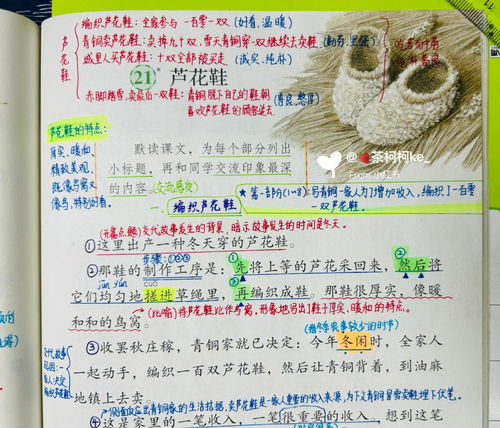 芦花鞋
编织芦花鞋：全家参与 一百零一双（好看、温暖）
青铜卖芦花鞋：卖掉九十双，雪天青铜穿一双继续去卖鞋（勤劳、坚强）
城里人买芦花鞋：十双全部被买走（诚实、纯朴）
赤脚踏雪，卖最后一双鞋：青铜脱下自己的鞋，朝
喜欢芦花鞋的顾客追去（善良、憨厚）
21 芦花鞋
芦花鞋的特点：
厚实、暖和
精致美观、
既像鸟窝又
像鸟，特别好看。
默读课文，为每个部分列出
小标题，再和同学交流印象最深
的内容。（交流感受）
@茶柯柯ke_
一、编织芦花鞋
★第一部分（1~8）：写青铜一家人为了增加收入，编织了一百零
一双芦花鞋。
（开篇点题）交代故事发生的背景，暗示故事发生的时间是冬天。
①这里出产一种冬天穿的芦花鞋。
步骤：①②③
②那鞋的制作工序是：①先将上等的芦花采回来，②然后将
jūn yún cuō
它们均匀地搓进草绳里，③再编织成鞋。那鞋很厚实，像暖
和和的鸟窝。
（比喻）将芦花鞋比作鸟窝，形象地写出了鞋子厚实、暖和的特点。
（指冬季农事较少的时节）
③收罢秋庄稼，青铜家就已决定：今年冬闲时，全家人
一起动手，编织一百双芦花鞋，然后让青铜背着，到油麻
地镇上去卖。
交代故事
④这是家里的一笔收入，一笔很重要的收入。想到这笔